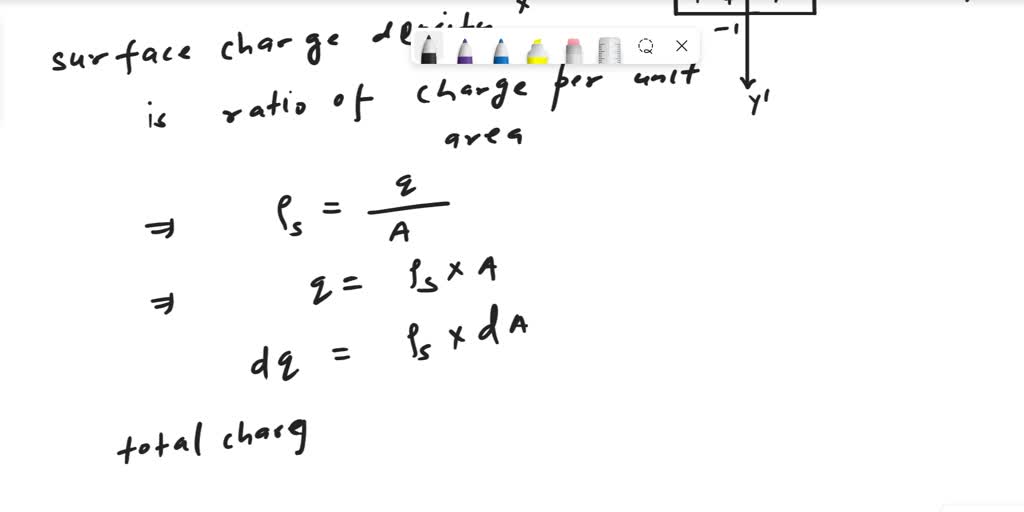 x
surface charge density
-1
is ratio of charge per unit
y'
area
⇒ ρs = q / A
⇒ q = ρs × A
dq = ρs × dA
total charg